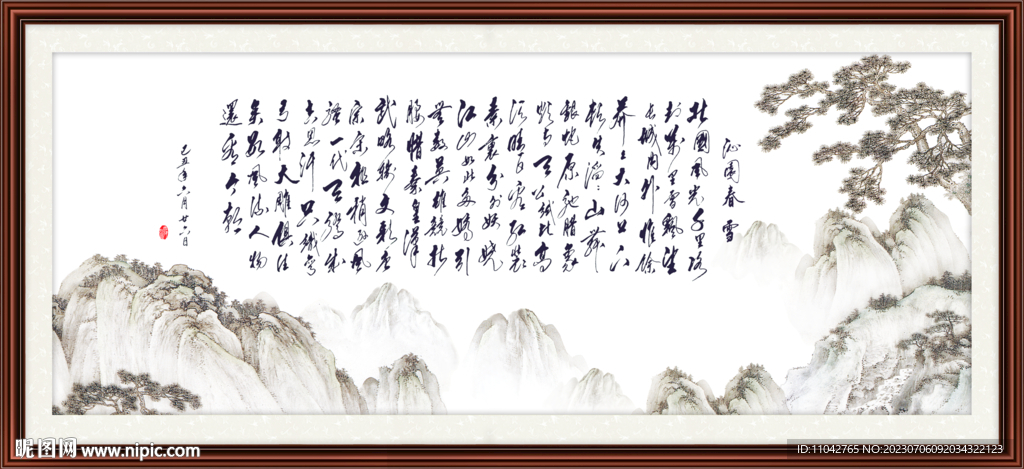 沁園春 雪
北國風光千里冰
封萬里雪飄望
长城内外惟餘
莽〻大河上下
頓失滔〻山舞
銀蛇原馳臘象
欲与天公試比高
须晴日看红裝
素裹分外妖娆
江山如此多嬌引
無數英雄競折
腰惜秦皇漢
武略輸文彩唐
宗宋祖稍遜風
騷一代天驕成
吉思汗只識弯
弓射大雕俱往
矣數風流人物
還看今朝
己丑年六月廿六日
昵图网 www.nipic.com
ID:11042765 NO:20230706092034322123